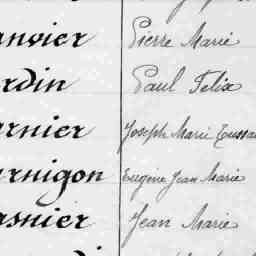 anvier Pierre Marie
rdin Paul Felix
arnier Joseph Marie Toussa
arnigon Eugène Jean Marie
asnier Jean Marie